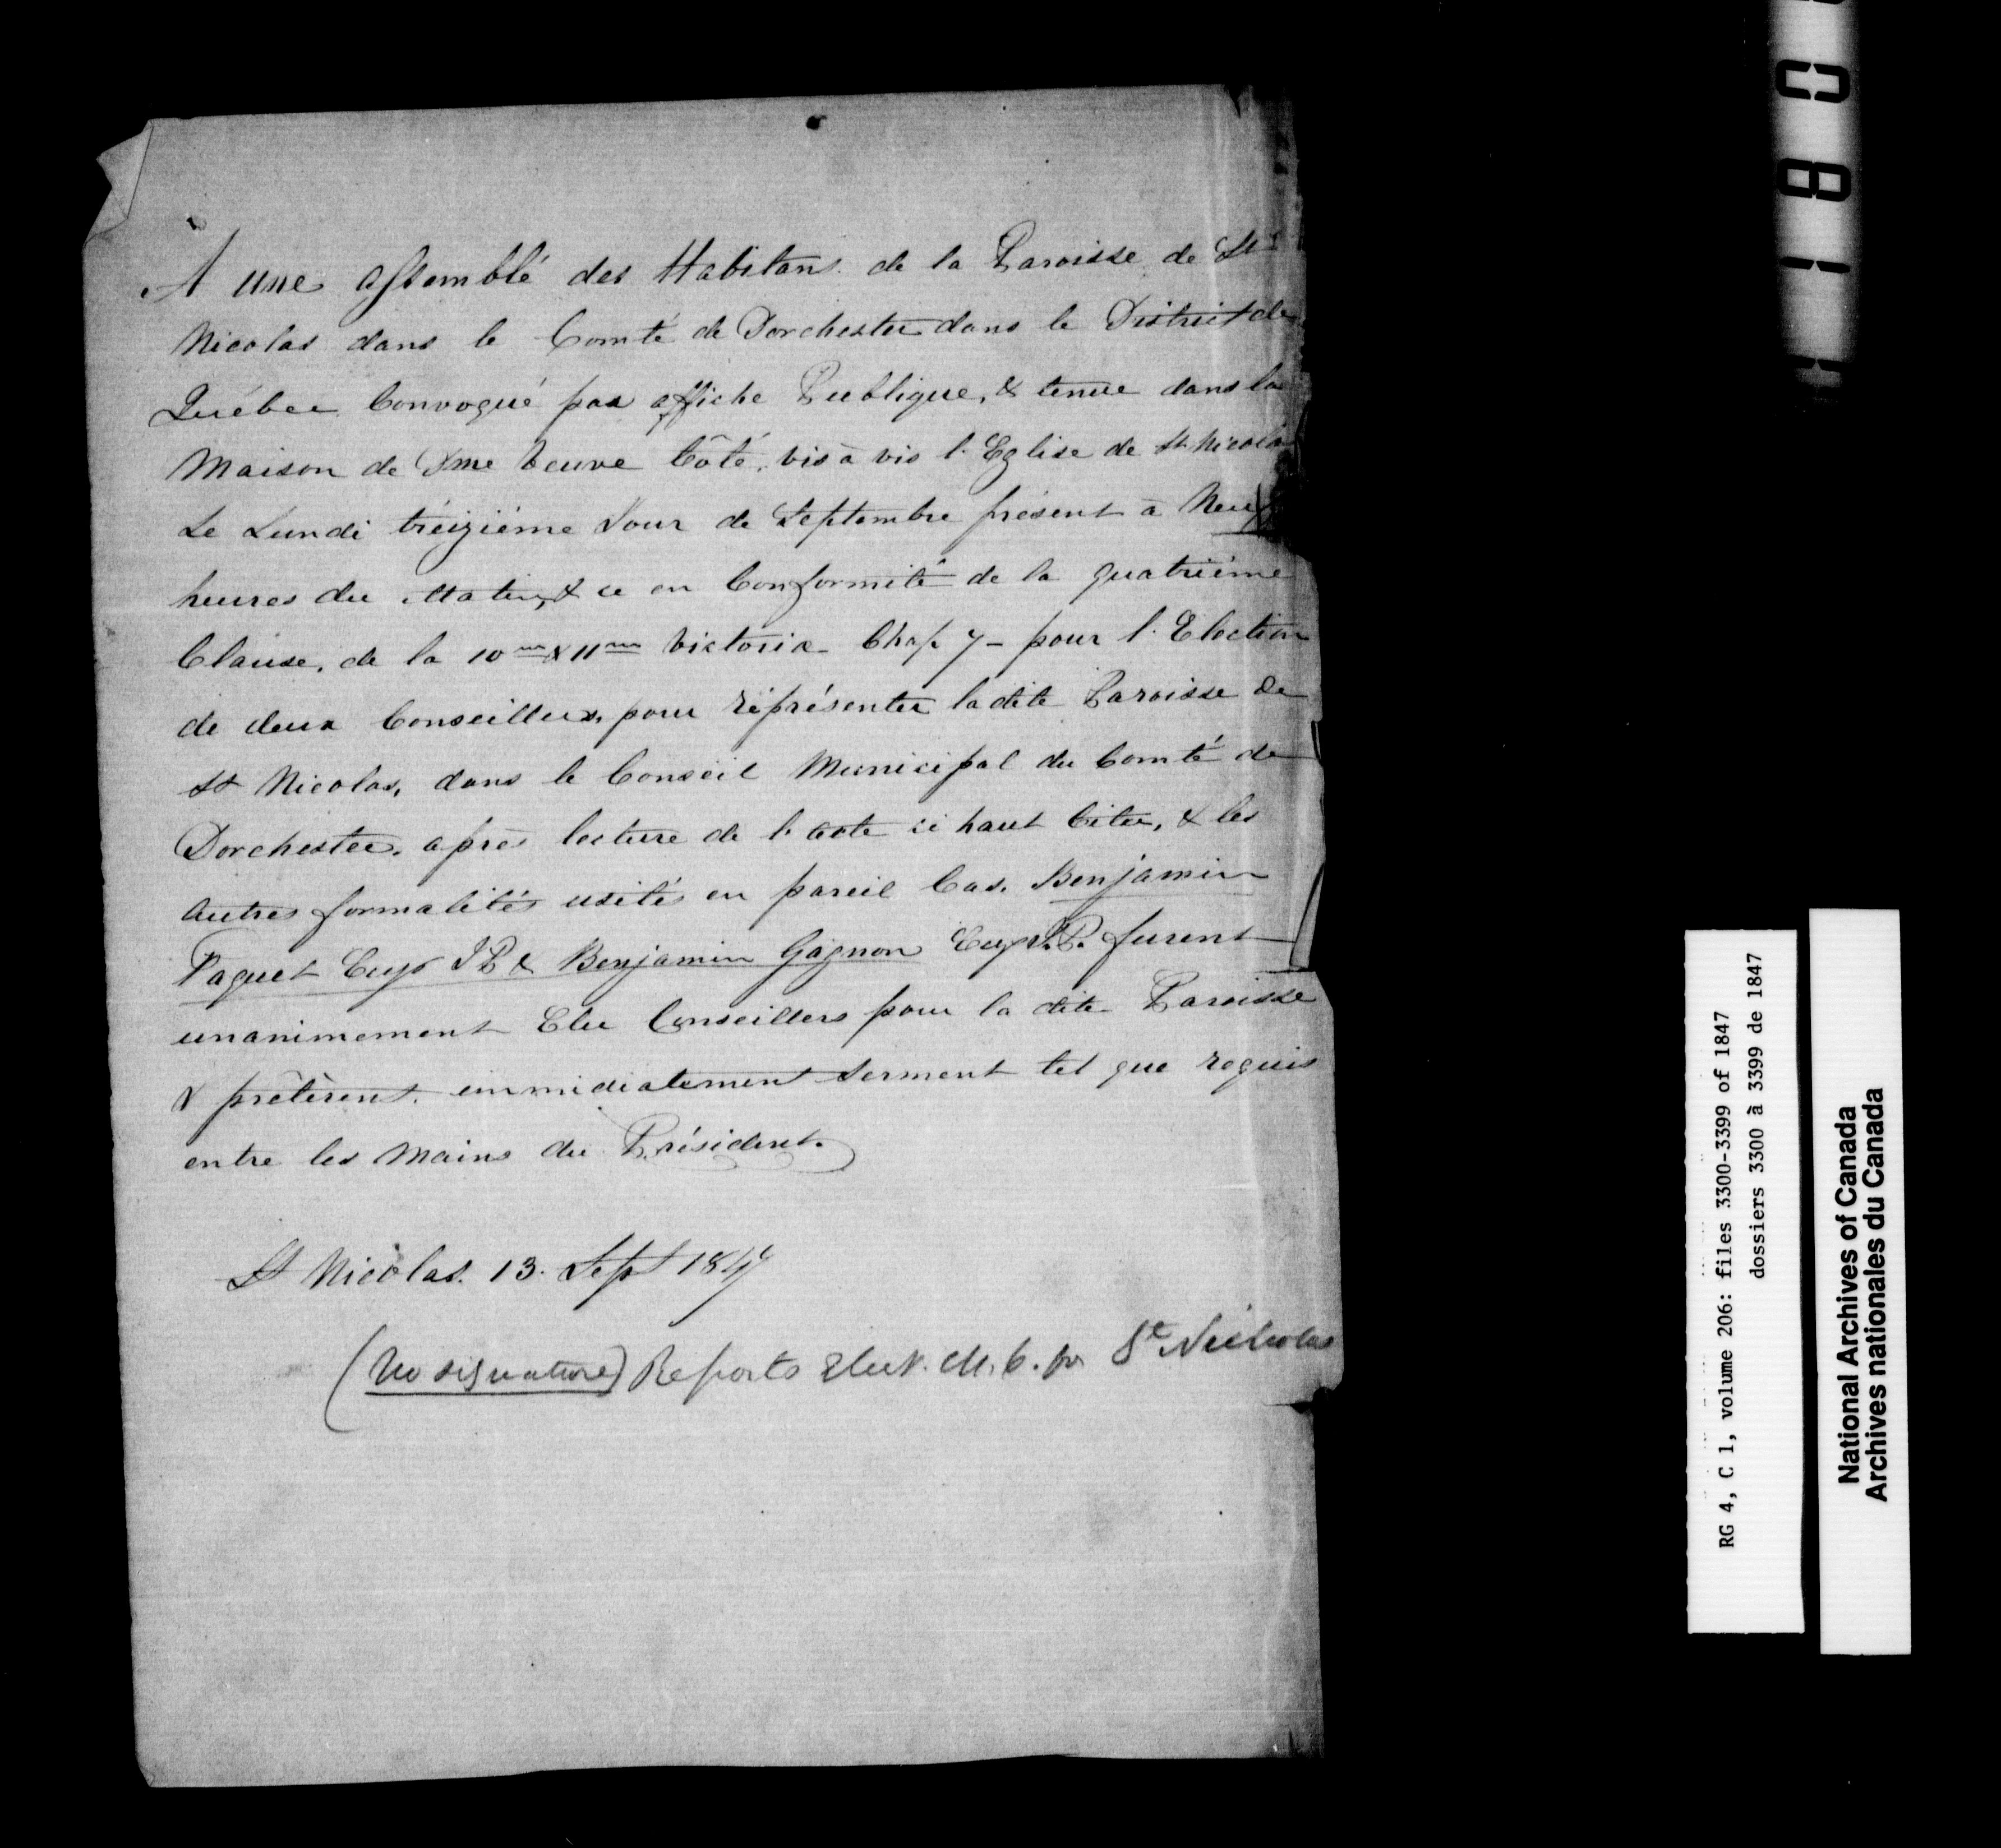 A une assemblé des Habitans de la Paroisse de St
Nicolas dans le Comté de Dorchester dans le District de
Québec Convoqué par affiche Publique, & tenue dans la
Maison de Dme Veuve Côté, vis à vis l'Eglise de St Nicolas
Le Lundi treizième Jour de Septembre présent à Neuf
heures du Matin, & ce en Conformité de la quatrième
Clause, de la 10me & 11me Victoria Chap 7 - pour l'Election
de deux Conseillers, pour réprésenter la dite Paroisse de
St Nicolas, dans le Conseil Municipal du Comté de
Dorchester, après lecture de l'acte ci haut Citer, & les
autres formalités usités en pareil Cas, Benjamin
Paquet Cuyr JP & Benjamin Gagnon Cuyr J.P. furent
unanimement Elu Conseillers pour la dite Paroisse
& prêtèrent immidiatement serment tel que requis
entre les Mains du Président.
St Nicolas. 13. Sept 1847
(No signature) Reports Elect. M. C. for St Nicholas
RG 4, C 1, volume 206: files 3300-3399 of 1847
dossiers 3300 à 3399 de 1847
National Archives of Canada
Archives nationales du Canada